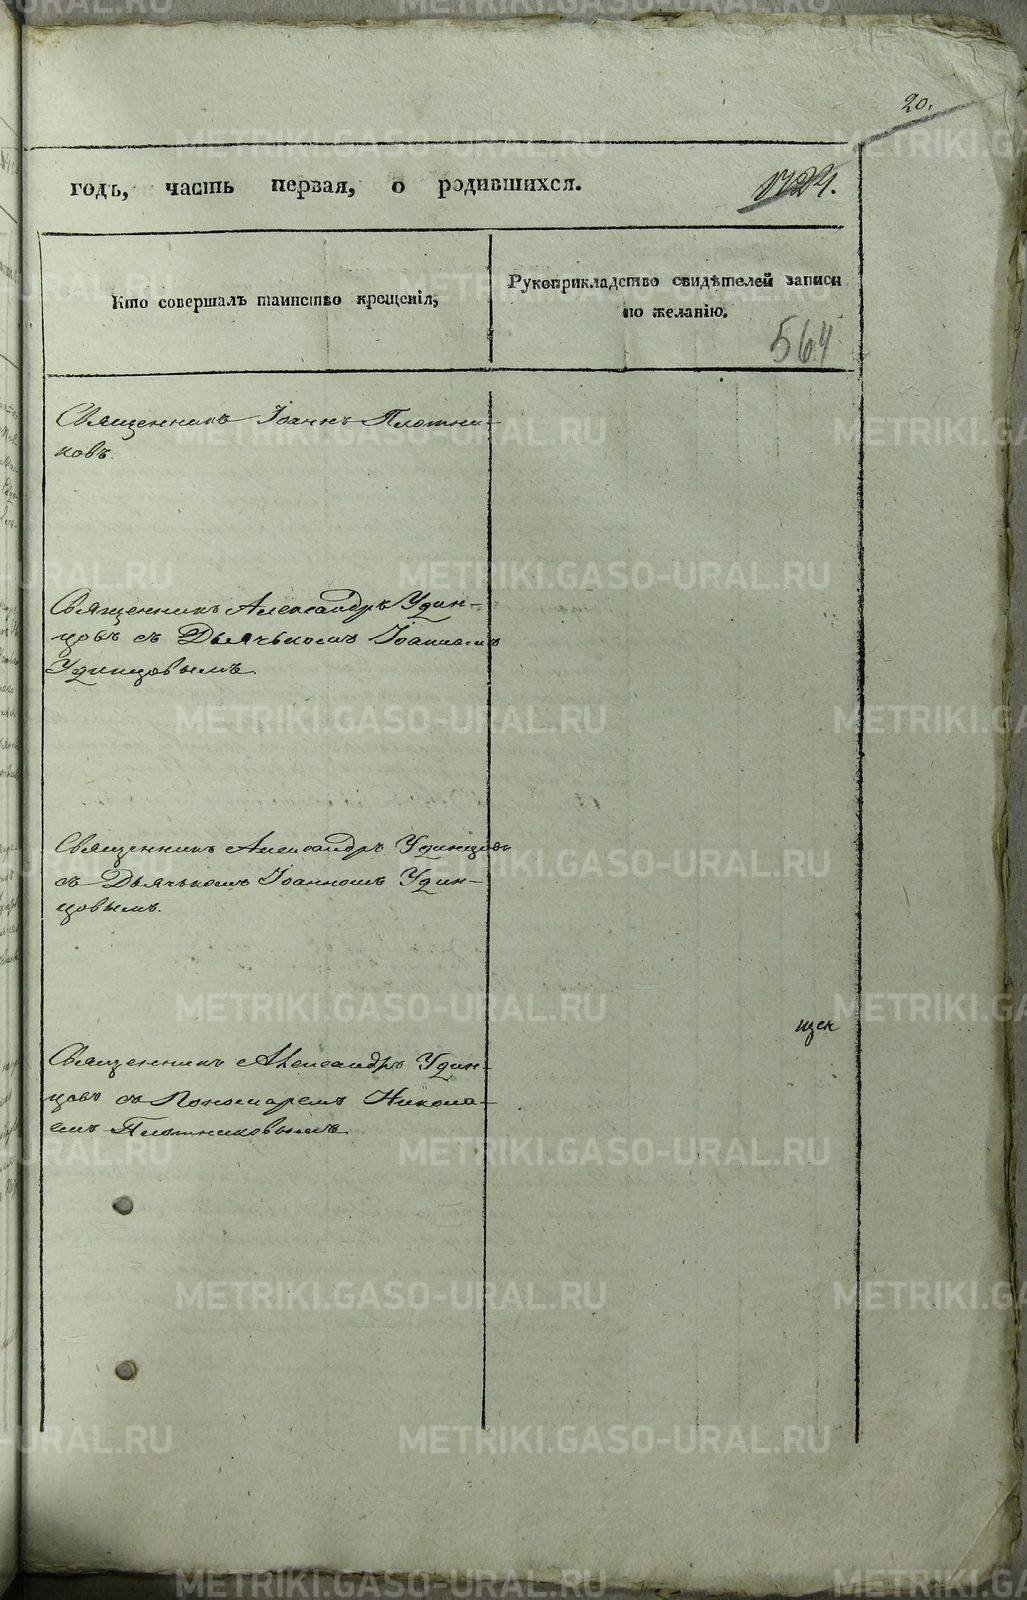 20.
годъ, часть первая, о родившихся.
Кто совершалъ таинство крещенія,
Рукоприкладство свидѣтелей записи
по желанію.
564
Священникъ Іоаннъ Плотни-
ковъ.
Священникъ Александръ Удин-
цовъ съ Дьячькомъ Іоанномъ
Удинцовымъ.
Священникъ Александръ Удинцовъ
съ Дьячькомъ Іоанномъ Удин-
цовымъ.
Священникъ Александръ Удин-
цовъ съ Пономаремъ Никола-
емъ Плотниковымъ.
METRIKI.GASO-URAL.RU